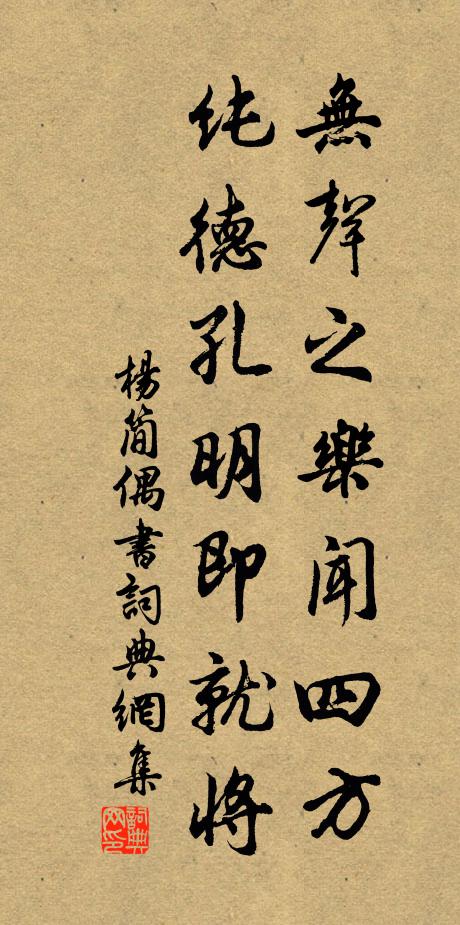 無聲之樂聞四方
純德孔明即就將
楊簡偶書詞典網集
詞典
网印